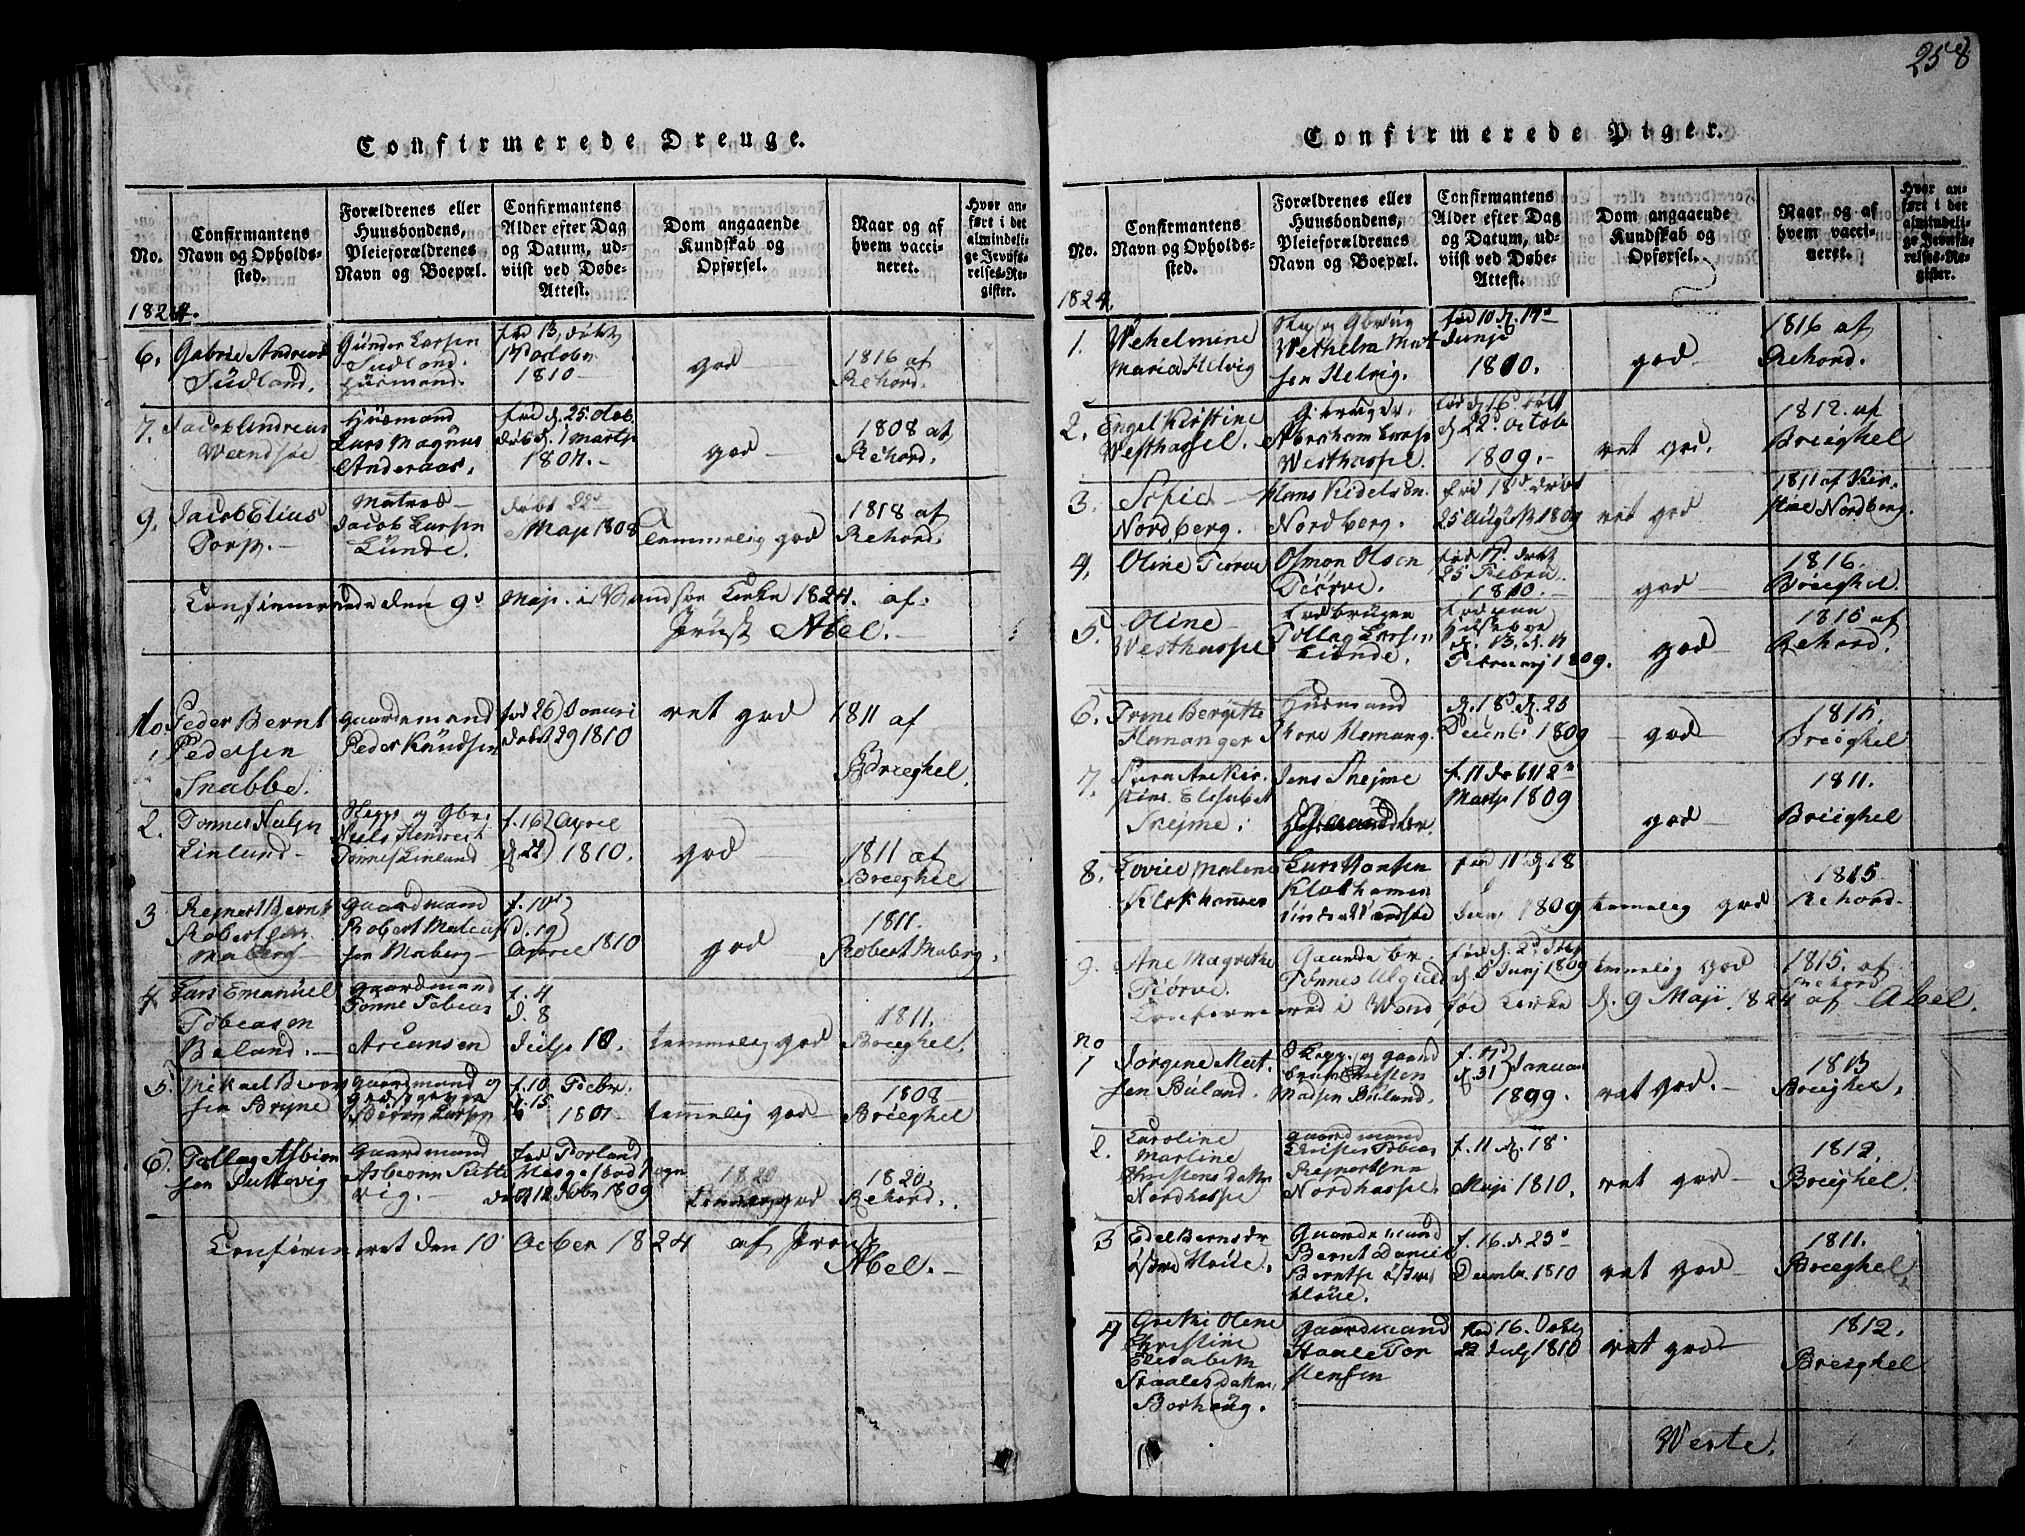 258
Confirmerede Drenge.
No.
Confirmantens
Navn og Opholds-
sted.
Forældrenes eller
Huusbondens,
Pleieforældrenes
Navn og Boepæl.
Confirmantens
Alder efter Dag
og Datum, ud-
viist ved Døbe-
Attest.
Dom angaaende
Kundskab og
Opførsel.
Naar og af
hvem vacci-
neret.
Hvor an-
ført i det
almindeli-
ge Jevnfø-
relses-Re-
gister.
1824.
6.
Gabrie Andreas
Sudland.
Gunder Larsen
Sudland.
Huusmand.
fød 13, døbt
17 octobr
1810
god
1816 af
Rehord.
7.
Jacob Andreas
Wandsøe
Huusmand
Lars Magnus
Anderaas.
fød d. 25. Octob.
døb d. 1 martj
1807.
god
1808 af
Rehord.
9.
Jacob Elius
Torp.
Matros
Jacob Larsen
Lunde.
døbt 22d
Maji 1808
temmelig god
1818 af
Rehord.
Confirmerede den 9d Maji i Wandsøe Kirke 1824. af
Prust Abel.
No
1
Peder Bernt
Pedersen
Snabbe.
gaardemand
Peder Knudsen
fød 26 Januari
døbt 29 1810
ret god
1811 af
Brieghel.
2.
Tonnes Nielsn
Linland
Niels Kenrect
Tonnes Linland
f. 16 April
d. 22 1810.
god
1811 af
Brieghel
3
Rejnert Bernt
Robertsen
Maberg
gaardmand
Robert Matias
sen Maberg
f. 10d
d. 19
April 1810
god
1811.
Robert Maberg.
4
Lars Emanuel
Tobeasen
Beland.
gaardmand
Tonne Tobeas
Areansen
f. 4
d. 8
Julji 10.
temmelig god
1811.
Brieghel.
5.
Mikael Beorn
sen Bryne
gaardmand og
Giestgever
Biørn Larsen
f. 10 Febr.
d. 15
1807
temmelig god
1808
Brieghel
6.
Tollag Asbiorn
sen Puttevig
Gaardmand
Asbeorn Putte
vig.
fød Forland
døbt 12 Nobr 1809
1820
temmelig god
1820.
Rehord.
Confirmeret den 10 Octber 1824 af Prost
Abel.
Confirmerede Piger.
No.
Confirmantens
Navn og Opholds-
sted.
Forældrenes eller
Huusbondens,
Pleieforældrenes
Navn og Boepæl.
Confirmantens
Alder efter Dag
og Datum, ud-
viist ved Døbe-
Attest.
Dom angaaende
Kundskab og
Opførsel.
Naar og af
hvem vacci-
neret.
Hvor an-
ført i det
almindeli-
ge Jevnfø-
relses-Re-
gister.
1824.
1.
Wehelmine
Maria Helvig
Wethelm Mat
sen Helvig.
fød 10 d. 17d
Junji
1810.
god
1816 af
Rehord.
2.
Engel Kirstine
Westhassel.
G. bruger
Abraham Larse
Westhassel.
fød d. 16. døbt
d. 22d Octob
1809.
ret god.
1812. af
Brieghel
3.
Sofie
Nordberg.
Hans Kidelsen.
Nordberg.
fød 18d døbt
25 August 1809
ret god
1811 af Kir-
stine Nordberg.
4.
Oline Tiørve
Osmon Olsen
Tiørve.
fød 17. døbt
25 Febru
1810.
god
1816.
Brieghel.
5.
Oline
Westhassel
Tollag Larsen
Liunde.
d. 13. d. 17
Februarj 1809.
god
1815 af
Rehord.
6.
Trine Bergitte
Hananger
Huusmand
Thore Hamang.
d. 18d d. 25
Decemb. 1809
god
1815.
Brieghel
7.
Sara Ane Kir-
stine Elisabet
Snejme
Jens Snejme
f. 11 døbt 12n
Martji 1809
god
1811.
Brieghel
8.
Lovise Malene
Klokhamer
Lars Hansen
Klokhamer
under Wandsøe
fød 11d d. 18
1809
temmelig god
1815
Rehord.
9.
Ane Magrethe
Tiorve.
Gaarde br.
Tønnes Ulgiel
fød d. 2d døbt
d. 5 Junj 1809
temmelig god
1815. af
Rehord
Confirmered i Wandsøe Kirke d. 9 Maji 1824 af Abel.
No
1
Jorgine Mat
sen Buland.
Skipp. og gaard
bruger Kristen
Madsen Buland.
f. 17 Januar
d. 31
1809.
ret god.
1813
Brieghel.
2.
Karoline
Martine
Christens datter
Nordhassel
gaard mand
Christen Tobeas
Rejnertsen
Nordhassel.
f. 11 d. 18
Maji 1810.
ret god
1812.
Brieghel.
3
Edel Bernsdr
østre Høite.
Gaarde mand
Bernt Daniel
Berntse øster
f. 16. d. 23d
Decembr. 1810
ret god
1811.
Brieghel.
4
Grethe Olene
Christine
Elisabeth
Staalesdatter
Borhaug.
gaardmand
Staale Tor
stensen
fød 16. Døbt
22 Julj 1810
ret god
1812.
Brieghel
Verte.